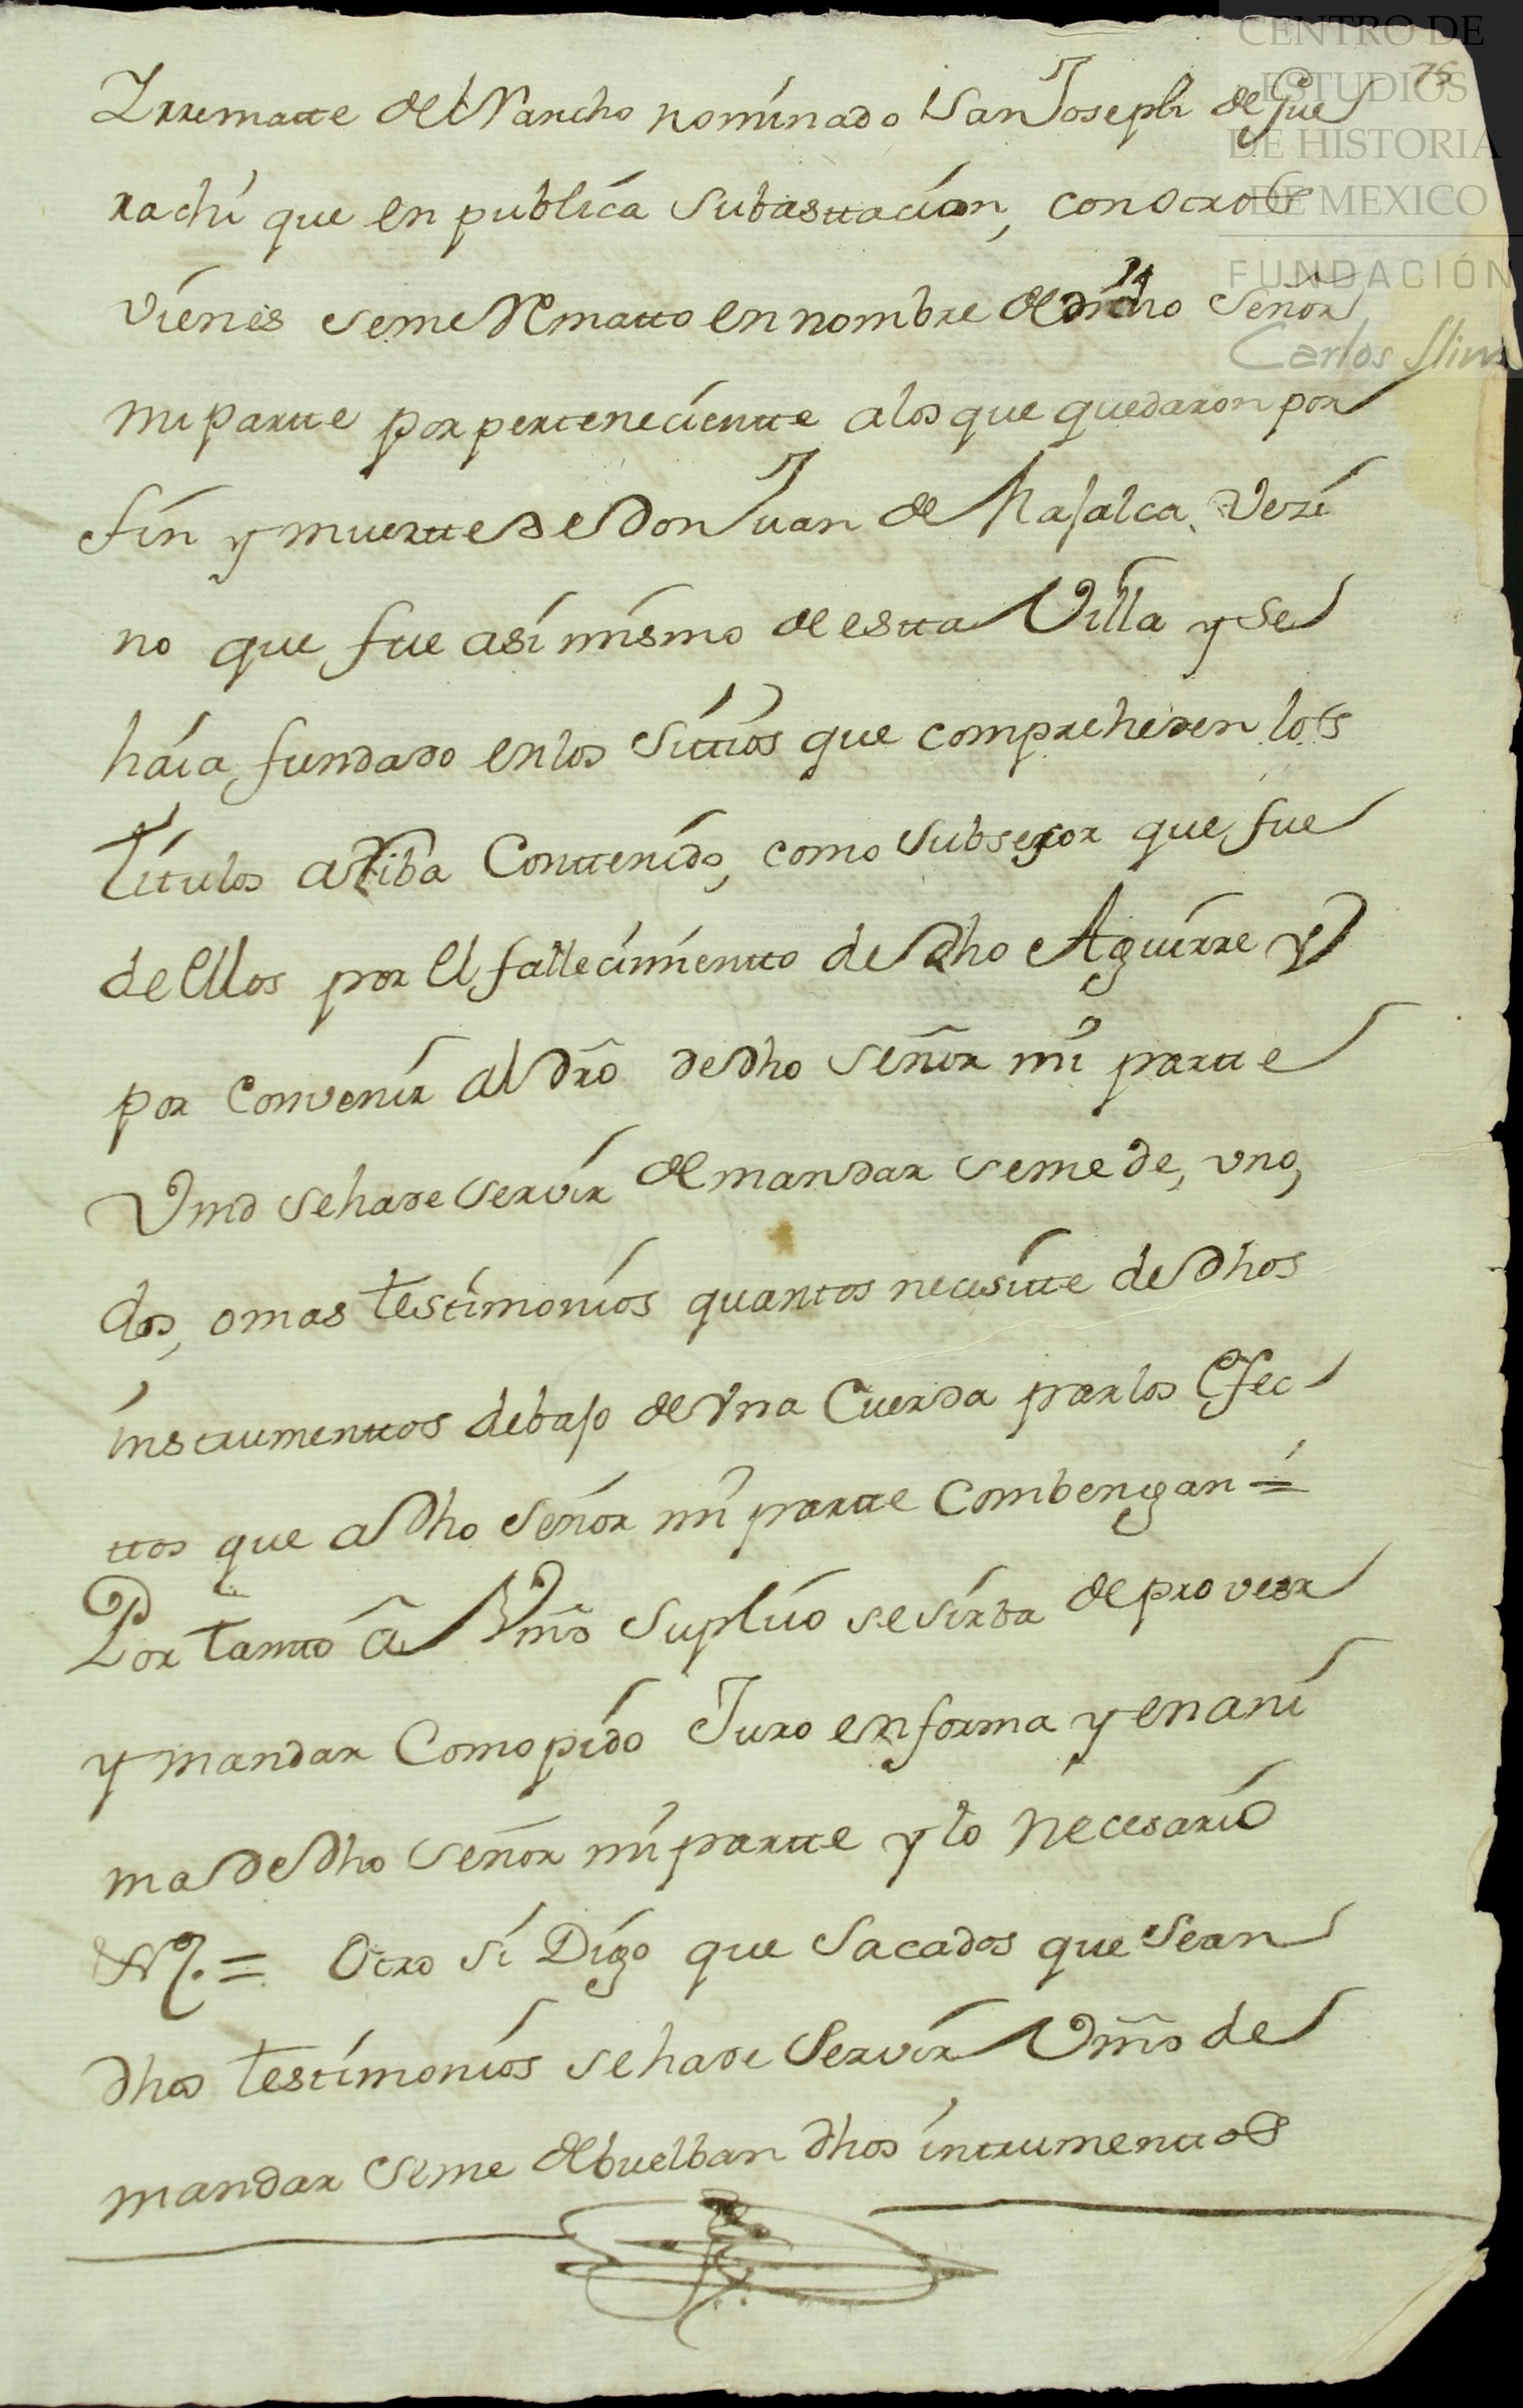 75
CENTRO DE
ESTUDIOS
DE HISTORIA
DE MEXICO
FUNDACIÓN
Carlos Slim
Yrrematte del Rancho nominado San Joseph de Gue
rachi que en publica subasttacion, con otrobs
vienes se me Rematto en nombre de dicho Señor
mi partte por pertenecientte a los que quedaron por
fin y muertte de Don Juan de Najalca, Vezi
no que fue asi mismo de estta Villa y se
haia fundado en los Sittios que comprehenden los
Titulos arriba Conttenidos, como subsesor que fue
de ellos por el fallecimientto de dho Aguirre y
por convenir al dr̃o de dho Señor mi partte
Vmd se ha de servir de mandar se me de, uno,
dos, o mas testimonios quantos necesitte de dhos
instrumenttos debajo de Una Cuerda par los Efec
ttos que a dho Señor mi partte Combengan =
Por tantto â Vmd̃ Suplico se sirba de proveer
y mandar Como pido Juro en forma y en ani
ma de dho Señor mi partte y lo necesario
&. = Otro si Digo que Sacados que Sean
dhos testimonios se ha de Servir Vmd̃ de
mandar se me debuelban dhos intrumenttos